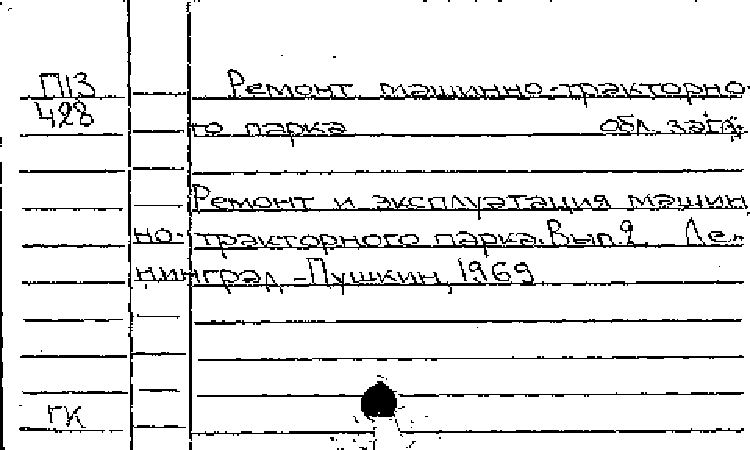 П13 Ремонт машинно-тракторно-
428 го парка обл. загл.
Ремонт и эксплуатация машин
но-тракторного парка. Вып. 2. Ле-
нинград-Пушкин, 1969
ГК